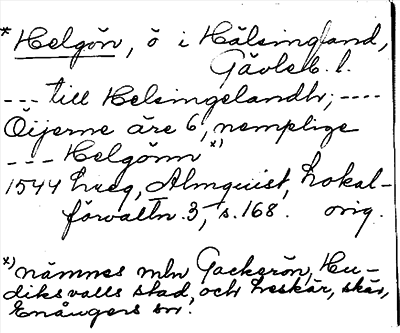 * Helgön, ö i Hälsingland,
Gävleb. l.
--- till Helsingelandh; ----
Öijerne äre 6, nemplige
--- Helgönn x)
1544 Lreg, Almquist, Lokal-
förvaltn. 3, s. 168. orig.
x) nämnes mln Gackerön, Hu-
diksvalls stad, och Leskär, skär,
Enångers sn.